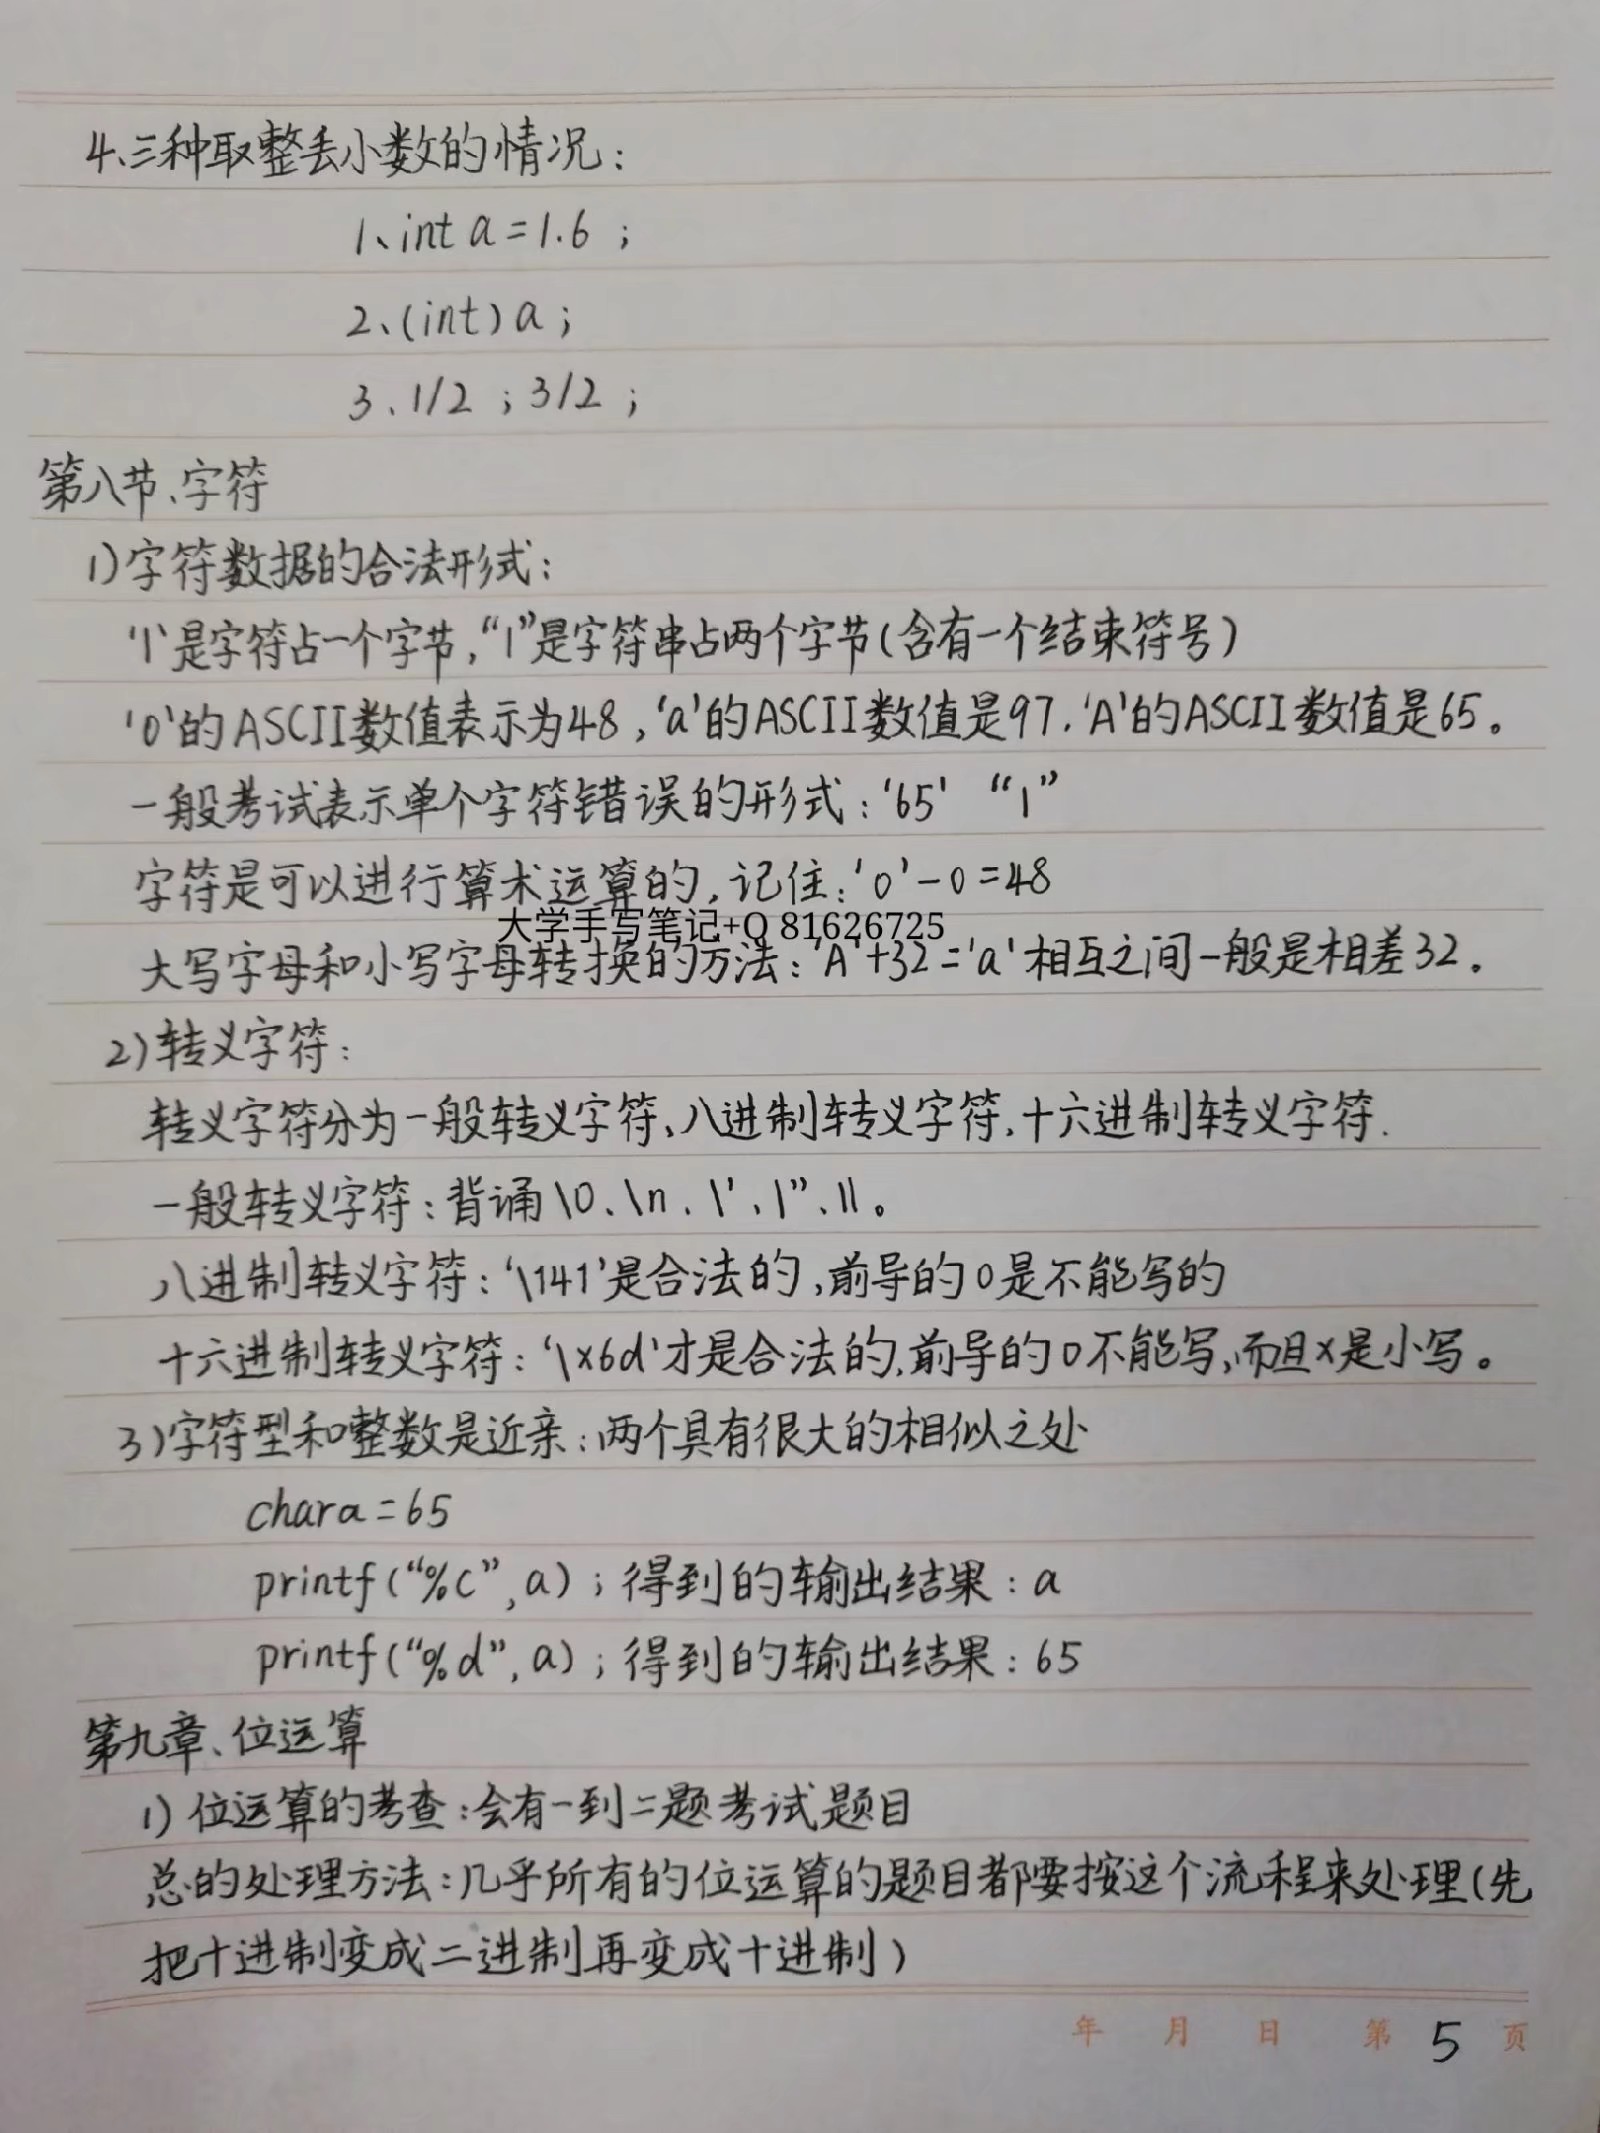 4、三种取整丢小数的情况：
1、int a=1.6 ；
2、(int)a；
3、1/2 ；3/2 ；
第八节、字符
1)字符数据的合法形式：
‘1’是字符占一个字节，“1”是字符串占两个字节（含有一个结束符号）
‘0’的ASCII数值表示为48，‘a’的ASCII数值是97，‘A’的ASCII数值是65。
一般考试表示单个字符错误的形式：‘65’ “1”
字符是可以进行算术运算的，记住：‘0’-0=48
大学手写笔记+Q 81626725
大写字母和小写字母转换的方法：‘A’+32=‘a’相互之间一般是相差32。
2)转义字符：
转义字符分为一般转义字符、八进制转义字符、十六进制转义字符.
一般转义字符：背诵\0、\n、\’、\”、\\。
八进制转义字符：‘\141’是合法的，前导的0是不能写的
十六进制转义字符：‘\x6d’才是合法的，前导的0不能写，而且x是小写。
3)字符型和整数是近亲：两个具有很大的相似之处
char a=65
printf(“%c”,a)；得到的输出结果：a
printf(“%d”,a)；得到的输出结果：65
第九章、位运算
1）位运算的考查：会有一到二题考试题目
总的处理方法：几乎所有的位运算的题目都要按这个流程来处理（先
把十进制变成二进制再变成十进制）
年 月 日 第 5 页